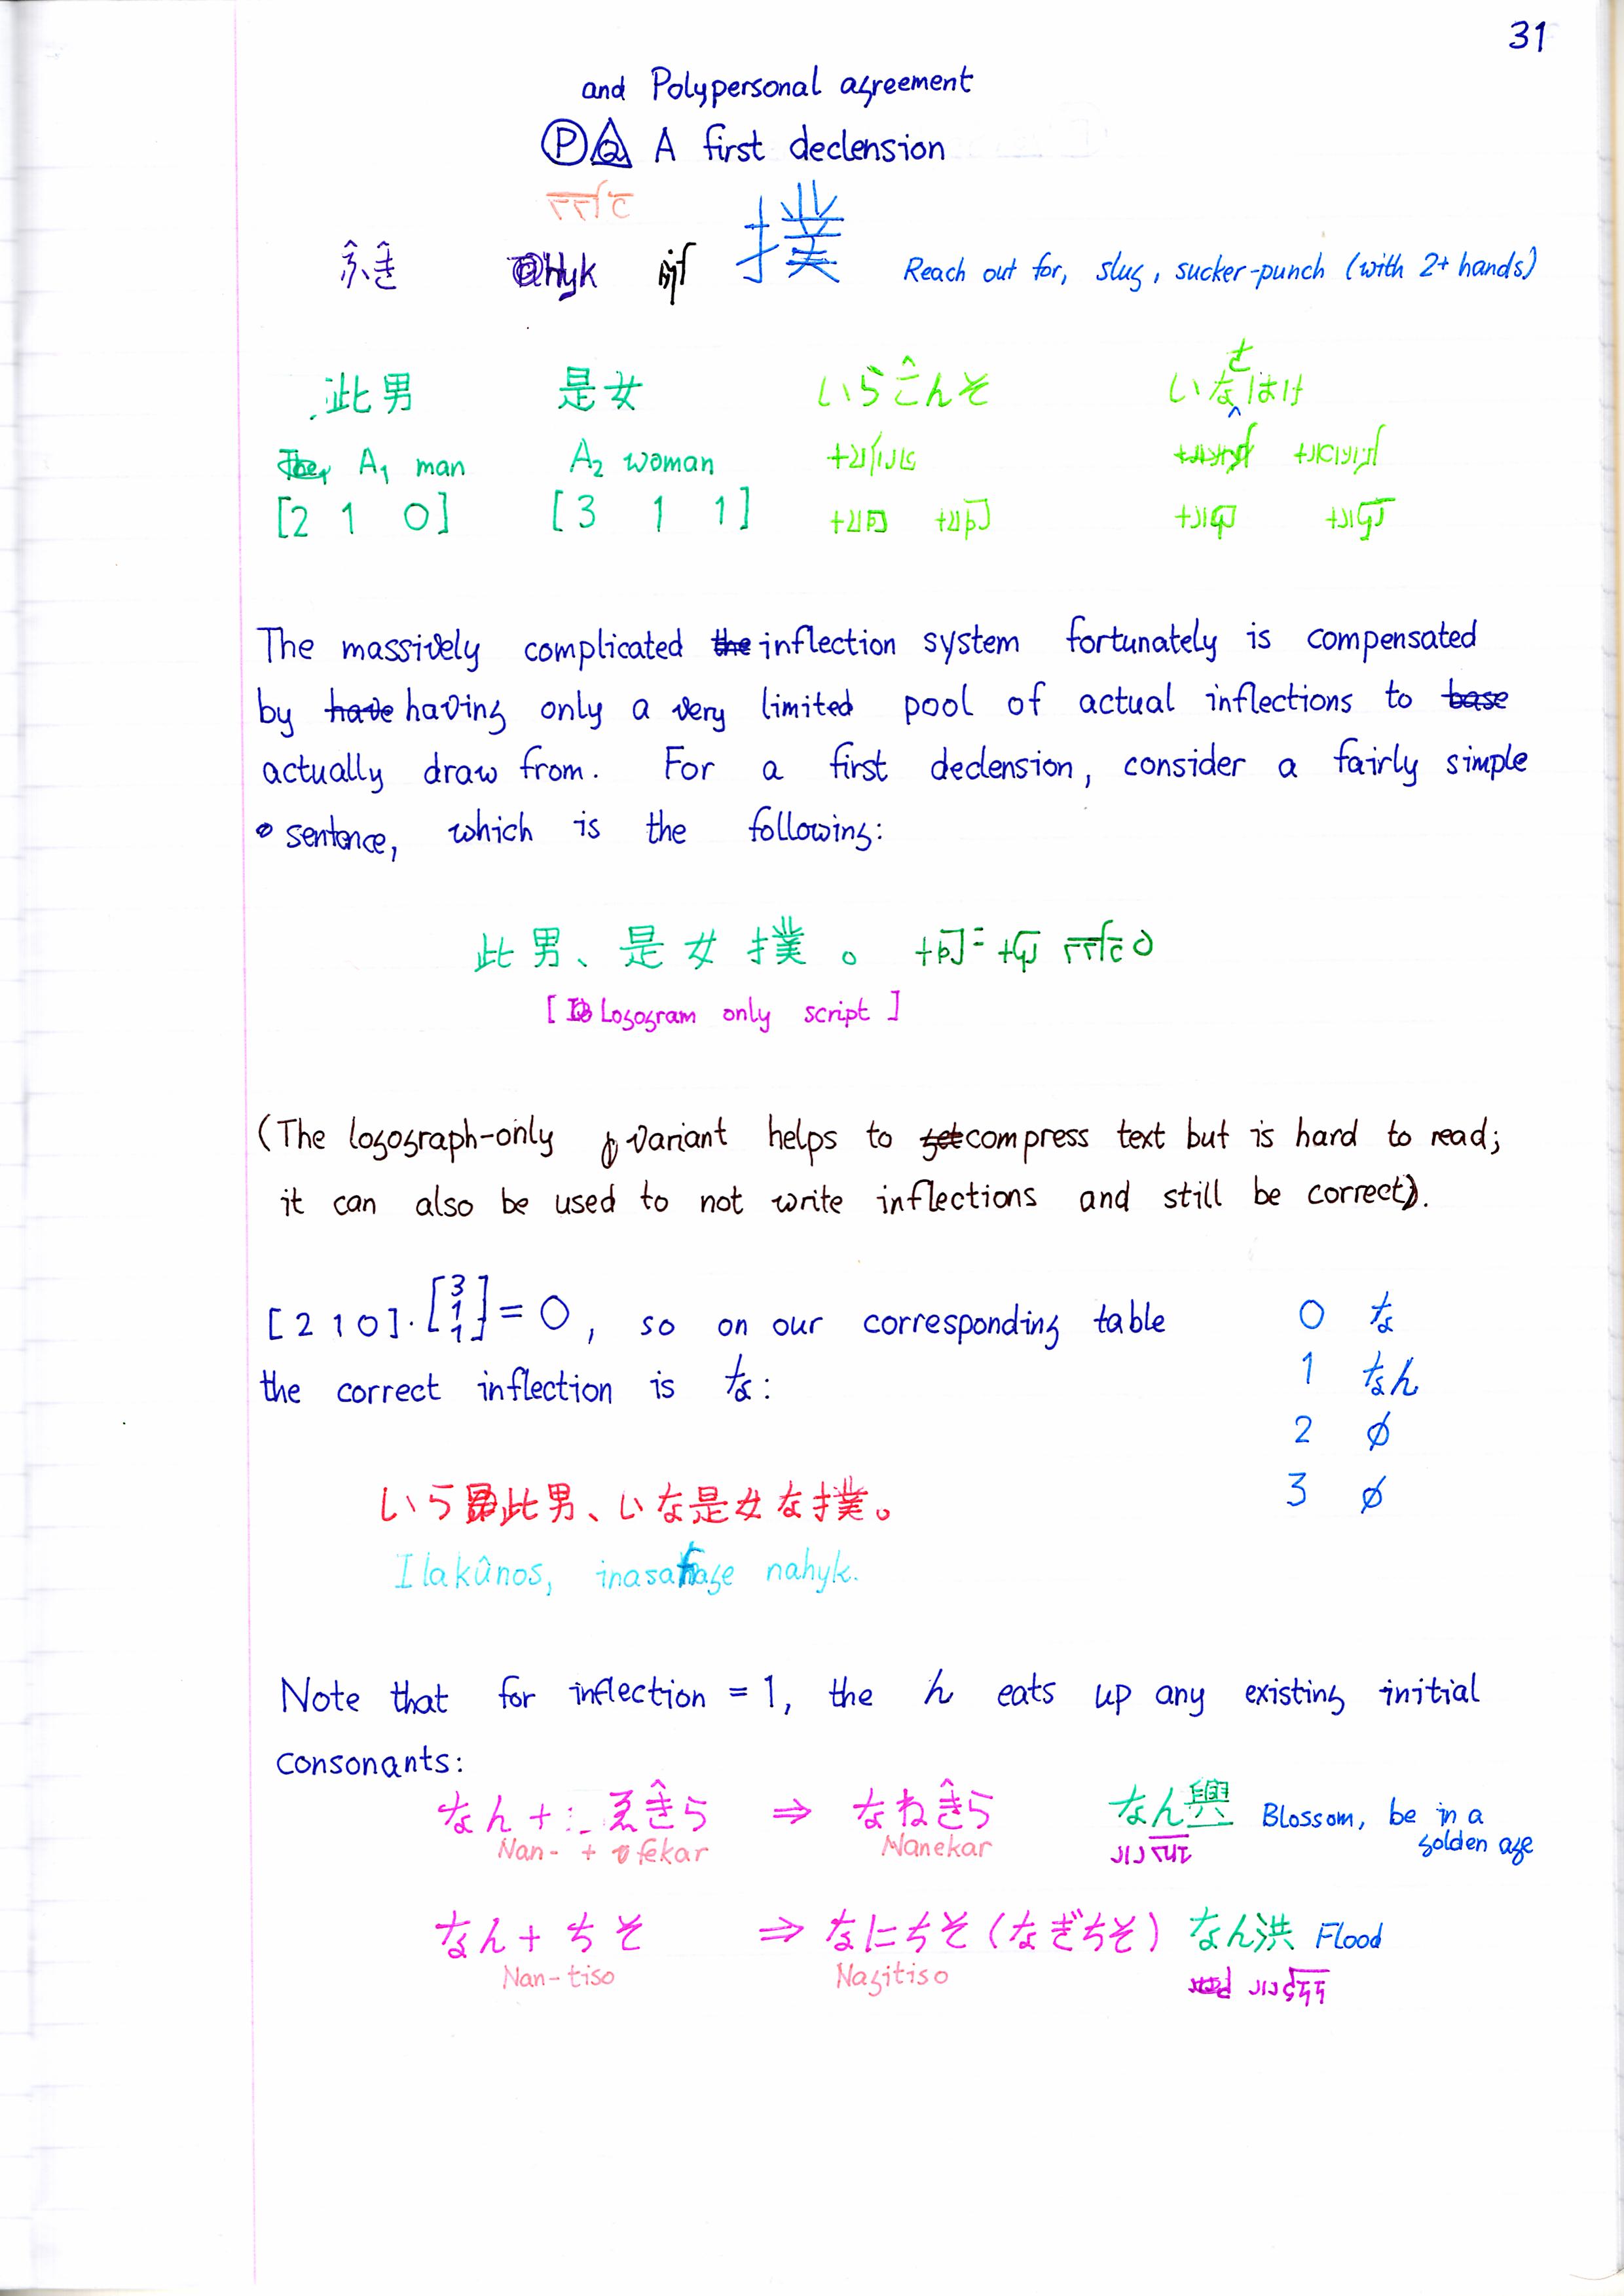 31
and Polypersonal agreement
Ⓟ A first declension
ふき Hyk 撲 Reach out for, slug, sucker-punch (with 2+ hands)
此男 是女 いらこ̂んそ いなさはけ
A₁ man A₂ woman
[2 1 0] [3 1 1]
The massively complicated the inflection system fortunately is compensated
by have having only a very limited pool of actual inflections to base
actually draw from. For a first declension, consider a fairly simple
sentence, which is the following:
此男、是女撲。
[Logogram only script]
(The logograph-only variant helps to get compress text but is hard to read;
it can also be used to not write inflections and still be correct).
[2 1 0]·[3 1 1] = 0, so on our corresponding table
the correct inflection is な:
0 な
1 なん
2 ∅
3 ∅
いら此男、いな是女な撲。
Ilakûnos, inasafage nahyk.
Note that for inflection = 1, the ん eats up any existing initial
consonants:
なん + ゑき̂ら ⇒ なねき̂ら なん興 Blossom, be in a golden age
Nan- + fekar Nanekar
なん + ちそ ⇒ なにちそ (なぎちそ) なん洪 Flood
Nan-tiso Nagitiso